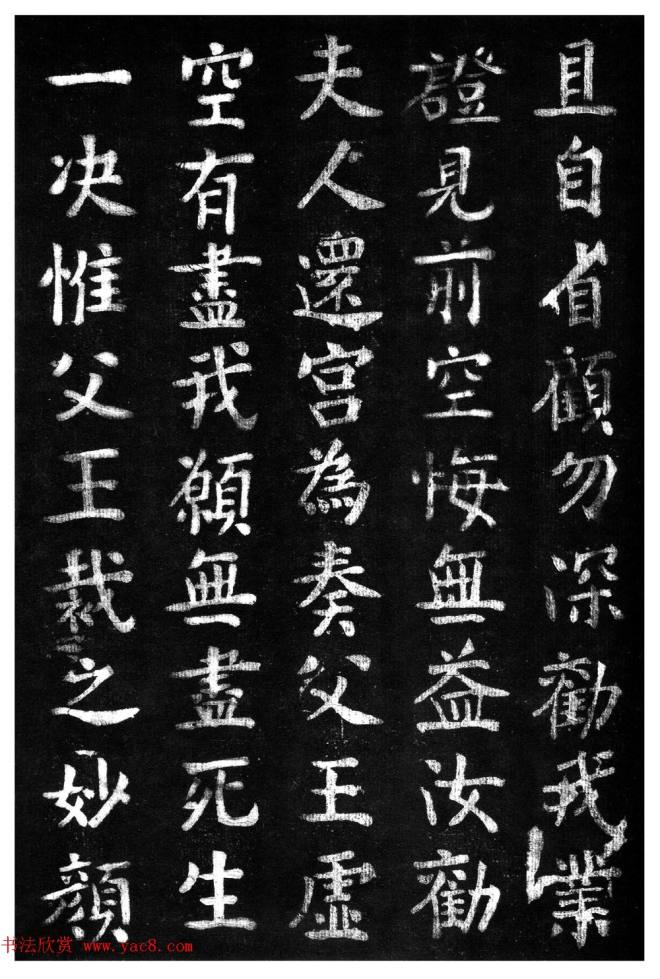 且自省顧勿深勸我業
證見前空悔無益汝勸
夫人還宮為奏父王虛
空有盡我願無盡死生
一决惟父王裁之妙顏
书法欣赏 www.yac8.com